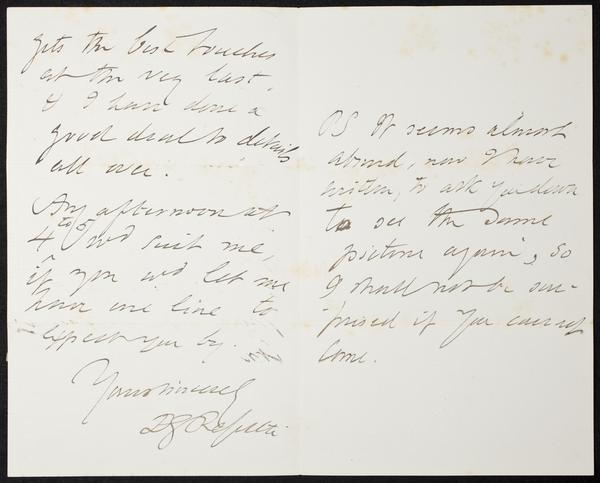 gets the best touches
at the very last,
& I have done a
good deal to details
all over.
Any afternoon at
4 to 5 wd suit me,
if you wd let me
have one line to
expect you by.
Yours sincerely
DG Rossetti
PS It seems almost
absurd, now I have
written, to ask you down
to see the same
picture again, so
I shall not be sur-
prised if you cannot
come.